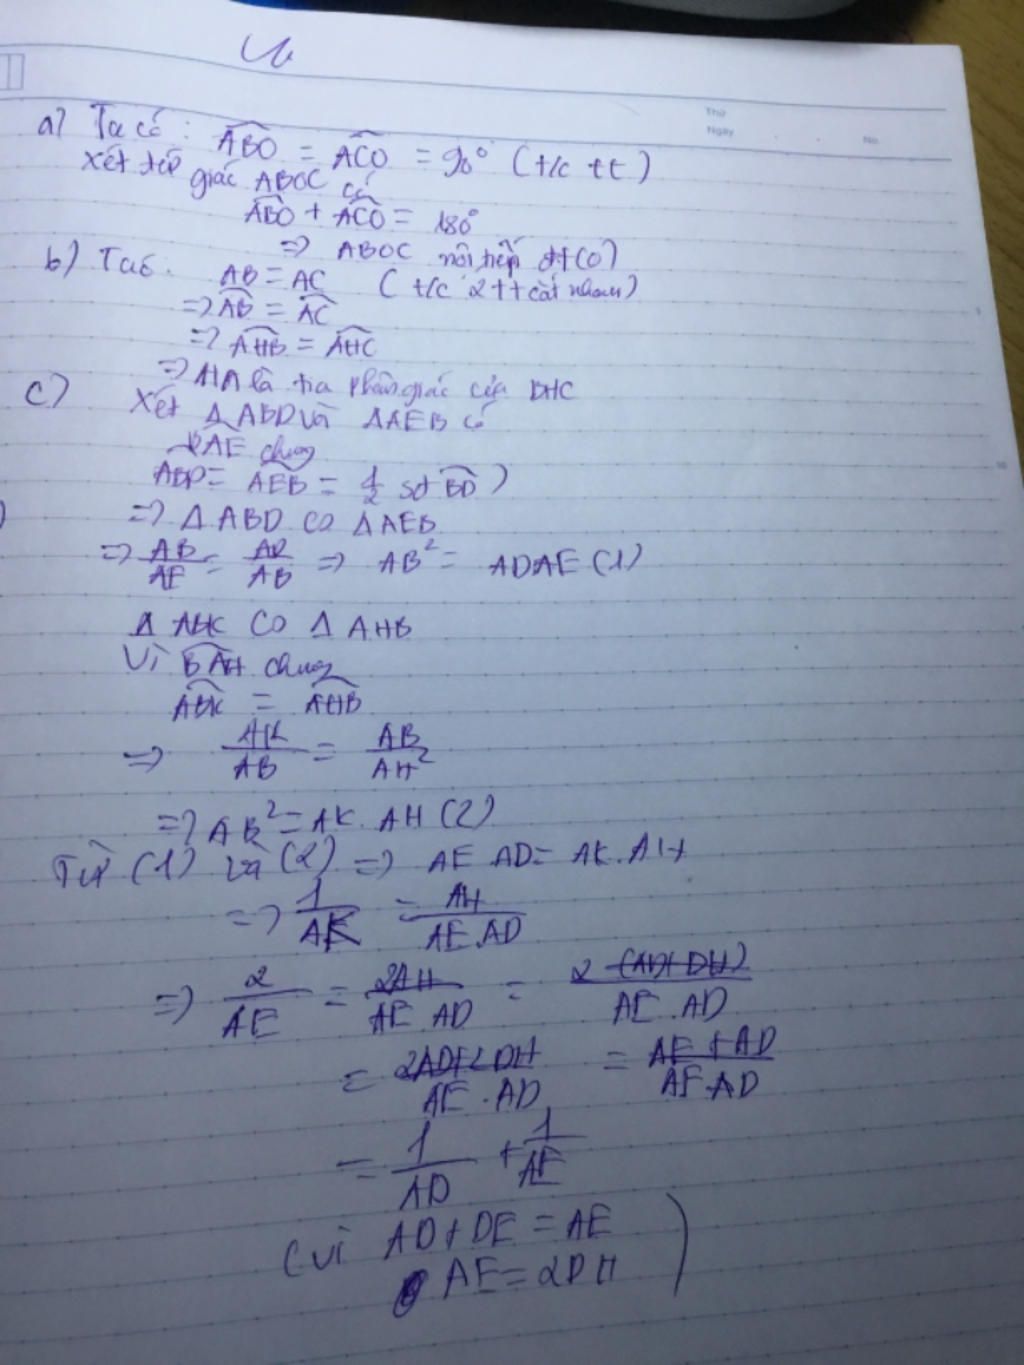 Thứ
Ngày No
a) Ta có: ABO = ACO = 90° (t/c tt)
xét tứ giác ABOC có
ABO + ACO = 180°
=> ABOC nội tiếp đt(O)
b) Ta có: AB = AC (t/c 2 tt cắt nhau)
=> AB = AC
=> AHB = AHC
=> HA là tia phân giác của BHC
c) Xét Δ ABD và Δ AEB có
BAE chung
ABD = AEB = 1/2 sđ BD)
=> Δ ABD ∽ Δ AEB
=> AB/AE = AD/AB => AB² = AD.AE (1)
Δ ABK ∽ Δ AHB
Vì BAH chung
ABK = AHB
=> AK/AB = AB/AH²
=> AB² = AK.AH (2)
Từ (1) và (2) => AE.AD = AK.AH
=> 1/AK = AH/AE.AD
=> 2/AE = 2AH/AE.AD = 2(AD+DH)/AE.AD
= 2AD+2DH/AE.AD = AE+AD/AE.AD
= 1/AD + 1/AE
(vì AD + DE = AE
AE = 2DH)